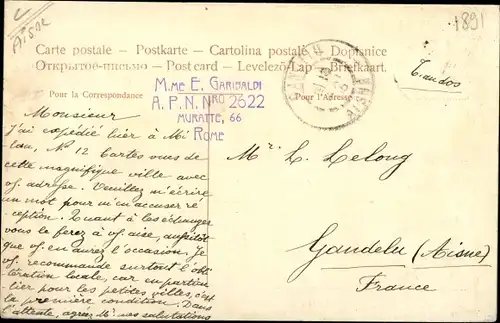 Aisne
1891
Carte postale – Postkarte – Cartolina postale – Dopisnice
Открытое-письмо – Post card – Levelező-Lap – Briefkaart.
Pour la Correspondance
Pour l'Adresse
M.ME E. GARIBALDI
A. P. N. NRO 2622
MURATTE, 66
ROME
Monsieur
J'ai expédié hier à Mi
lan, No 12 Cartes vues de
cette magnifique ville avec
vf. adresse. Veuillez m'écrire
un mot pour m'en accuser ré
ception. Quant à les échanges
vous le ferez à vf. aise, aussitôt
que vf. en aurez l'occasion. Je
vf. recommande surtout l'obli
tération locale, car en particu
lier pour les petites villes, c'est
la première condition. Dans
l'attente, agréez Mr. mes salutations
Mr. L. Lelong
Gandelu (Aisne)
France